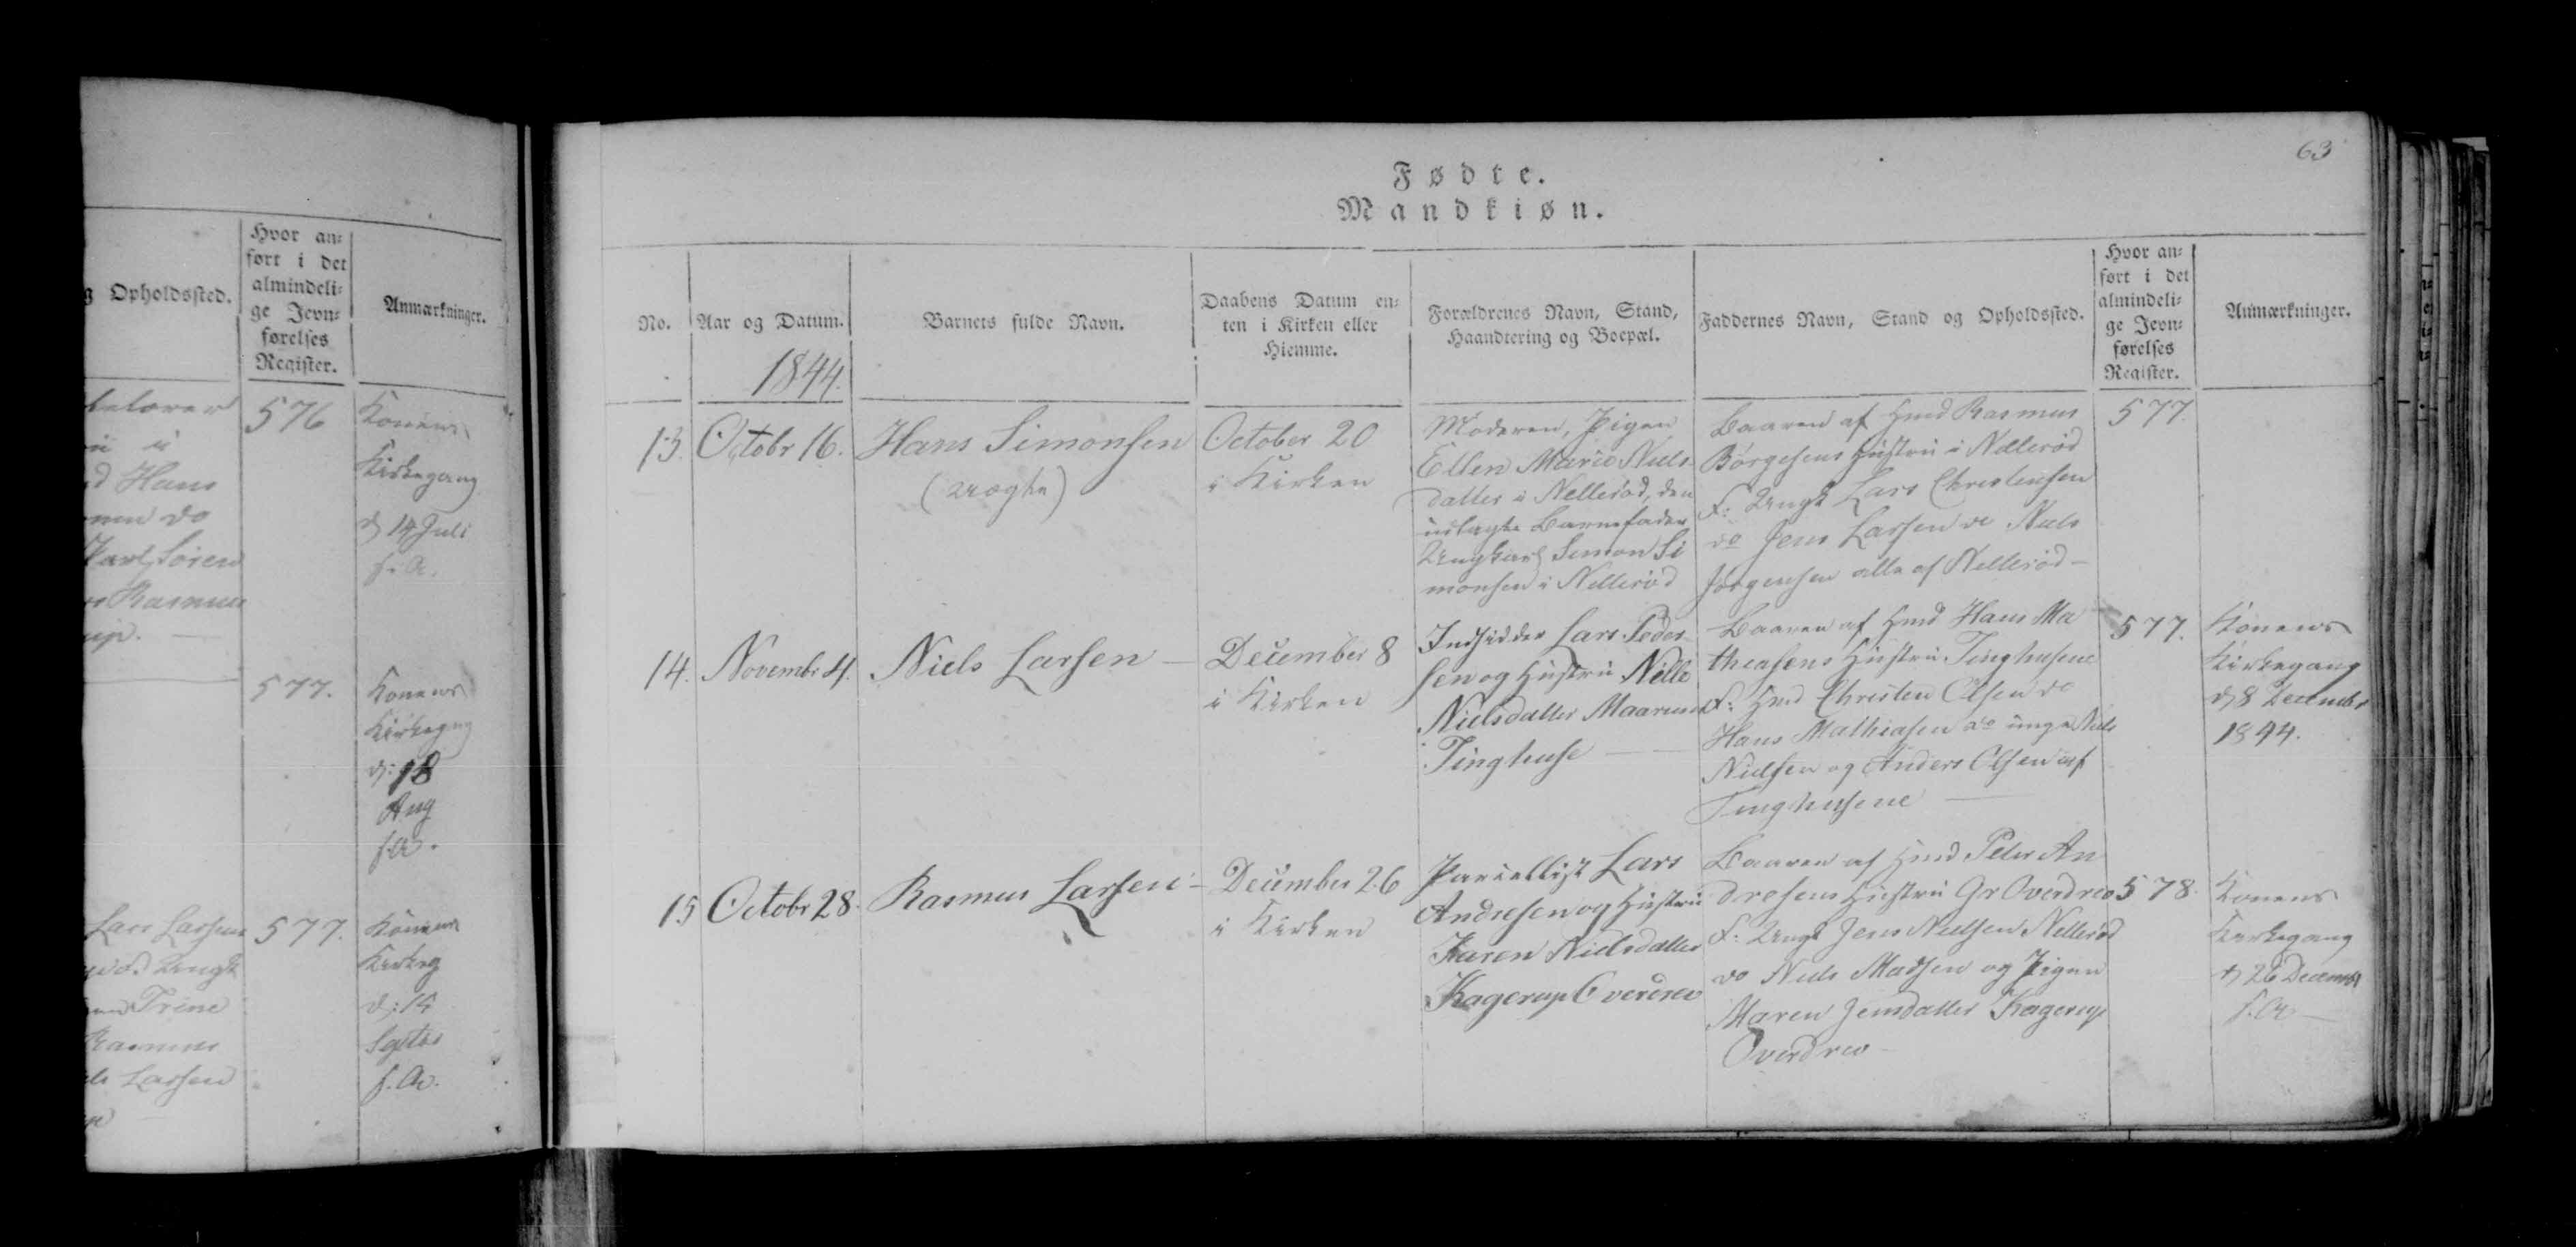 63
Fødte.
Mandkiøn.
g Opholdssted.
Hvor an-
ført i det
almindeli-
ge Jevn-
førelses
Register.
Anmærkninger.
576
Konens
Kirkegang
d 14 Juli
s. A.
d Hans
Søren
Rasmus
577.
Konens
Kirkegng
d: 18
Aug
s. A.
Lars Larsens
Ungk
Trine
Rasmus
ls Larsen
577.
Konens
Kirkeg
d: 15
Septbr
s. A.
No.
Aar og Datum.
1844.
Barnets fulde Navn.
Daabens Datum en-
ten i Kirken eller
Hiemme.
Forældrenes Navn, Stand,
Haandtering og Boepæl.
Faddernes Navn, Stand og Opholdssted.
Hvor an-
ført i det
almindeli-
ge Jevn-
førelses
Register.
Anmærkninger.
13.
Octobr 16.
Hans Simonsen
(uægte)
October 20
i Kirken
Moderen, Pigen
Ellen Marie Niels-
datter i Nellerød, den
udlagte Barnefader
Ungkarl Simon Si
monsen i Nellerød
Baaren af Hmd Rasmus
Børgesens Hustru i Nellerød
F: Ungk Lars Christensen
do Jens Larsen do Niels
Jørgensen alle af Nellerød -
577.
14.
Novembr 4.
Niels Larsen -
December 8
i Kirken
Indsidder Lars Peder-
sen og Hustru Nille
Nielsdatter Maarum
Tinghuse -
Baaren af Hmd Hans Ma
thiasens Hustru Tinghusene
F: Hmd Christen Olsen do
Hans Mathiasen do unge Niels
Nielsen og Anders Olsen af
Tinghusene -
577.
Konens
Kirkegang
d 8 Decembr
1844.
15
Octobr 28.
Rasmus Larsen -
December 26
i Kirken
Parcellist Lars
Andresen og Hustru
Karen Nielsdatter
Kagerup Overdrev
Baaren af Hmd Peter An
dresens Hustru Gr Overdrev
F: Ungk Jens Nielsen Nellerød
do Niels Madsen og Pigen
Maren Jensdatter Kagerup
Overdrev -
578.
Konens
Kirkegang
d 26 Decembr
s. A. -